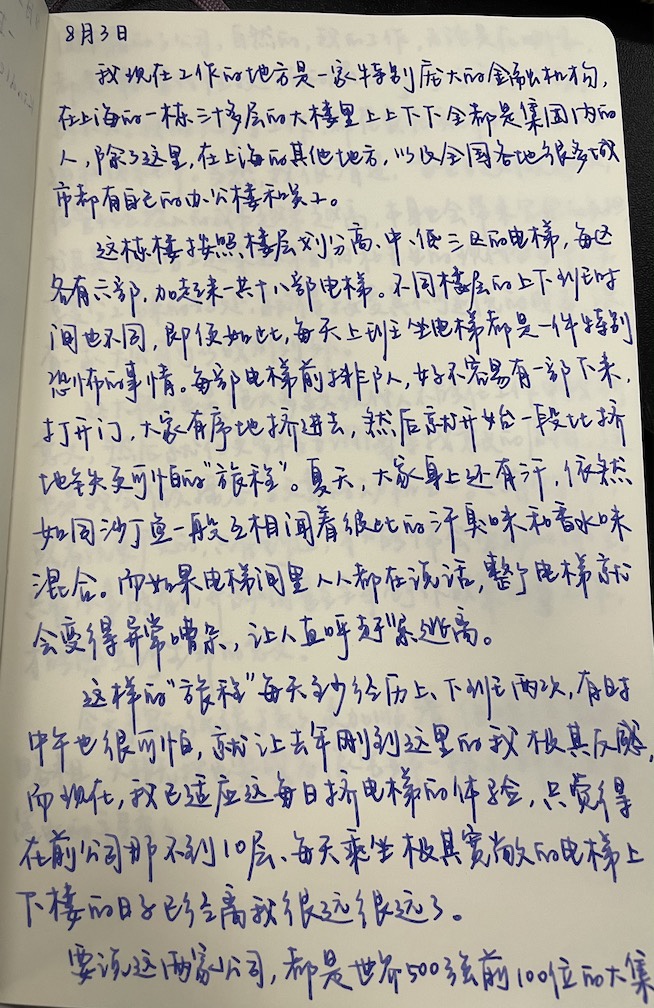 8月3日
我现在工作的地方是一家特别庞大的金融机构,
在上海的一栋三十多层的大楼里上上下下全都是集团内的
人,除了这里,在上海的其他地方,以及全国各地很多城
市都有自己的办公楼和员工。
这栋楼按照楼层划分高、中、低三区的电梯,每区
各有六部,加起来一共十八部电梯。不同楼层的上下班时
间也不同,即便如此,每天上班坐电梯都是一件特别
恐怖的事情。每部电梯前排队人,好不容易有一部下来,
打开门,大家有序地挤进去,然后就开始一段比挤
地铁更可怕的“旅程”。夏天,大家身上还有汗,依然
如同沙丁鱼一般互相闻着彼此的汗臭味和香水味
混合。而如果电梯间里人人都在谈话,整个电梯就
会变得异常嘈杂,让人直呼赶紧逃离。
这样的“旅程”每天至少经历上、下班两次,有时
中午也很可怕,就让去年刚到这里的我极其反感,
而现在,我已适应这每日挤电梯的体验,只觉得
在前公司那不到10层、每天乘坐极其宽敞的电梯上
下楼的日子已经离我很远很远了。
要说这两家公司,都是世界500强前100位的大集